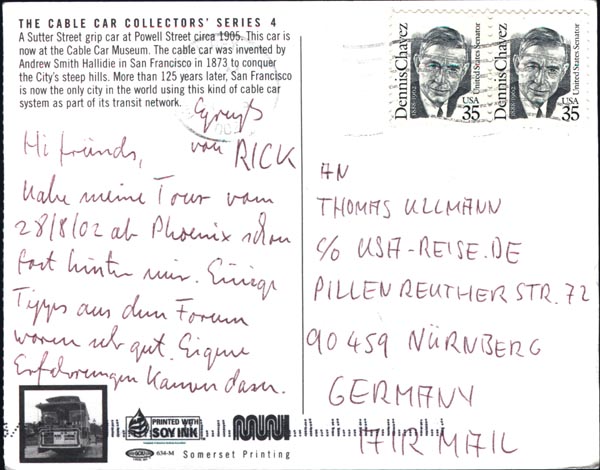 THE CABLE CAR COLLECTORS' SERIES 4
A Sutter Street grip car at Powell Street circa 1905. This car is
now at the Cable Car Museum. The cable car was invented by
Andrew Smith Hallidie in San Francisco in 1873 to conquer
the City's steep hills. More than 125 years later, San Francisco
is now the only city in the world using this kind of cable car
system as part of its transit network.
von RICK
Hi friends,
habe meine Tour vom
28/8/02 ab Phoenix schon
fast hinter mir. Einige
Tipps aus dem Forum
waren seh gut. Eigene
Erfahrungen kamen dazu.
Dennis Chavez
1888-1962
United States Senator
USA
35
Dennis Chavez
1888-1962
United States Senator
USA
35
AN
THOMAS ULLMANN
c/o USA-REISE.DE
PILLENREUTHER STR. 72
90459 NÜRNBERG
GERMANY
AIR MAIL
PRINTED WITH
SOY INK
muni
634-M
Somerset Printing